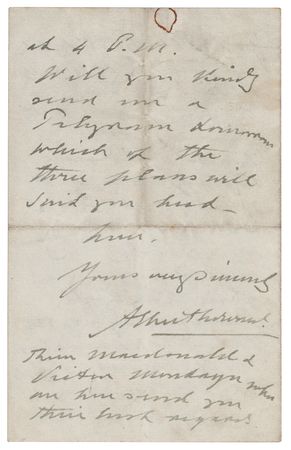 at 4 P.M.
Will you kindly
send me a
Telegram tomorrow
which of the
three plans will
suit you best
here.
Yours very sincerely
Macdonald &
Victor who
are here send you
their best regards